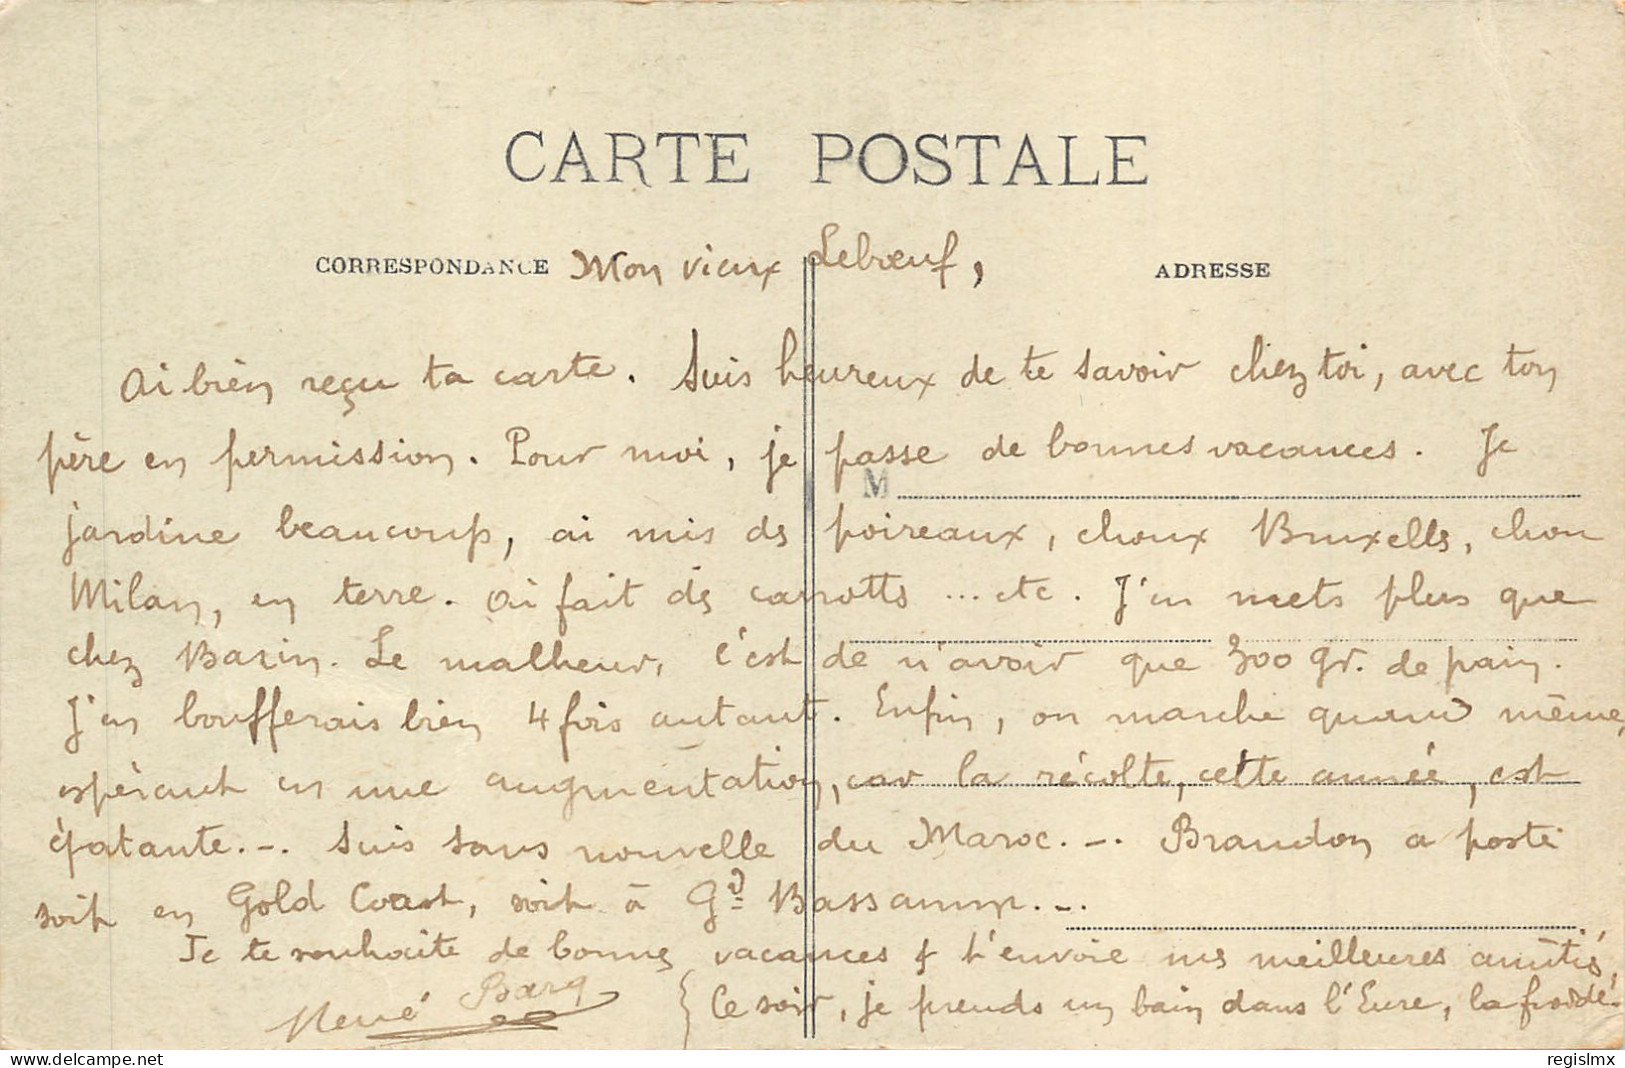 CARTE POSTALE
CORRESPONDANCE Mon vieux Lebœuf, ADRESSE
Ai bien reçu ta carte. Suis heureux de te savoir chez toi, avec ton
père en permission. Pour moi, je passe de bonnes vacances. Je
M
jardine beaucoup, ai mis des poireaux, choux Bruxelles, chou
Milan, en terre. Ai fait des carrottes ... etc. J'en mets plus que
chez Bazin. Le malheur, c'est de n'avoir que 300 gr. de pain.
J'en boufferais bien 4 fois autant. Enfin, on marche quand même,
espérant en une augmentation, car la récolte, cette année, est
épatante.-. Suis sans nouvelle du Maroc.-. Brandon a posté
soit en Gold Coast, soit à Gd Bassam.-.
Je te souhaite de bonnes vacances & t'envoie mes meilleures amitiés,
René { Ce soir, je prends un bain dans l'Eure, la
regislmx
www.delcampe.net